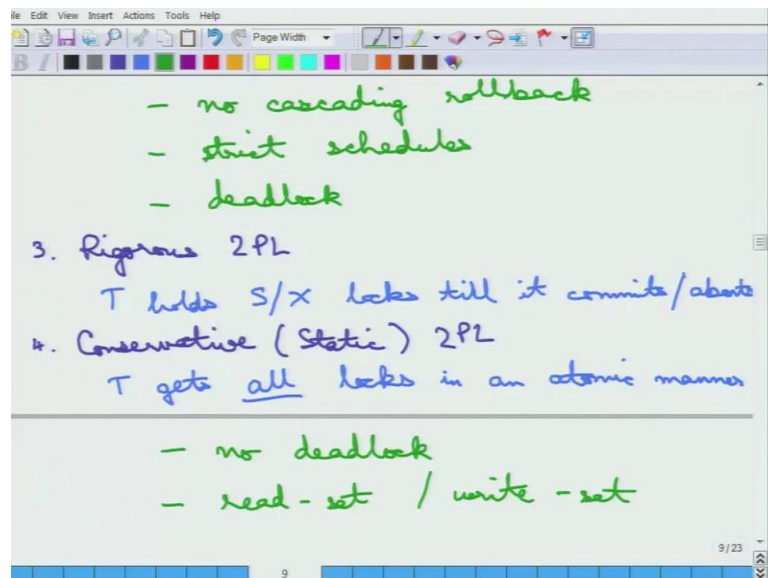 ile Edit View Insert Actions Tools Help
Page Width
B I
- no cascading rollback
- strict schedules
- deadlock
3. Rigorous 2PL
T holds S/X locks till it commits/aborts
4. Conservative (Static) 2PL
T gets all locks in an atomic manner
- no deadlock
- read-set / write-set
9/23
9